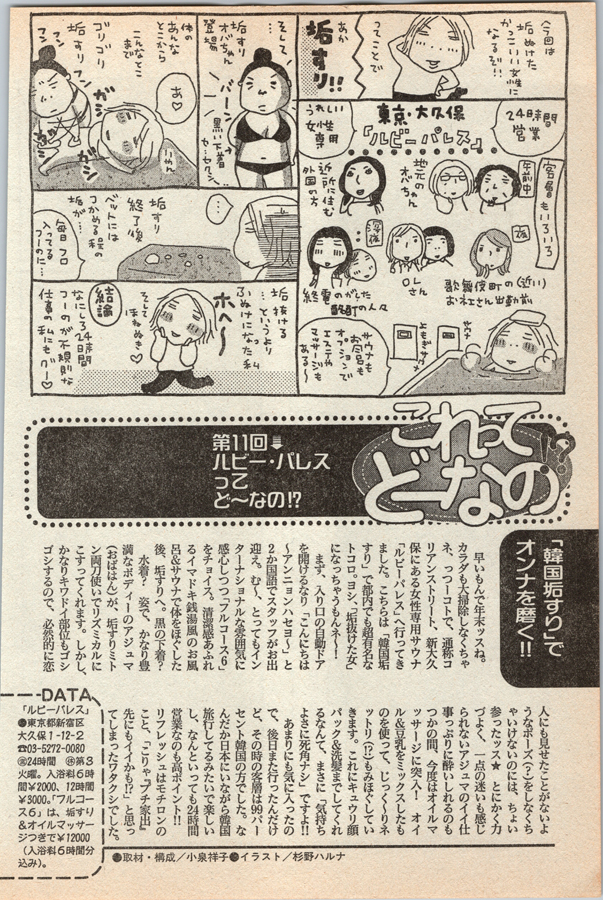 今回は
垢ぬけた
かっこいい女性に
なるゾ!!
ってことで
あか
垢すり!!
24時間
営業
東京・大久保
『ルビーパレス』
うれしい
女性
専用
客層もいろいろ
午前中
地元の
オバちゃん
近所に住む
外国の方
夜
歌舞伎町の(近い)
お江さん出勤前
OL
さん
深夜
終電のがした
サウナ
よもぎサウナ
サウナも
お風呂も
オプションで
エステや
マッサージも
ある〜
そして
…
垢すり
オバちゃん
登場
バーン
黒い下着
セ・セクシー
…
体の
あんな
とこから
こんなとこ
まで
ゴリゴリ
垢すり
フン
フン
あ♡
ガシ
ガシ
いやん
…
垢すり
終了後
ベットには
つかめる程の
垢が…
毎日フロ
入ってる
フーのに…
垢抜ける
…というより
ふぬけになった私
ホヘ〜
そして
ほねぬき♡
結論
なにしろ24時間
つーのが不規則な
仕事の私にもグー♡
これって
どーなの!?
第11回
ルビー・パレス
って
ど〜なの!?
「韓国垢すり」で
オンナを磨く!!
早いもんで年末ッスね。
カラダも大掃除しなくちゃ
ネ、っつーコトで、通称コ
リアンストリート、新大久
保にある女性専用サウナ
「ルビーパレス」へ行ってき
ました。こちらは「韓国垢
すり」で都内でも超有名な
トコロ。ヨシ、「垢抜けた女」
になっちゃうもんネ〜!
まず、入り口の自動ドア
を開けるなり「こんにちは
〜アンニョンハセヨ〜」と
2か国語でスタッフがお出
迎え。む〜、とってもイン
ターナショナルな雰囲気に
感心しつつ「フルコース6」
をチョイス。清潔感あふれ
るイマドキ銭湯風のお風
呂&サウナで体をほぐした
後、垢すりへ。黒の下着?
水着?姿で、かなり豊
満なボディーのアジュマ
(おばはん)が、垢すりミト
ン両刀使いでリズミカルに
こすってくれます。しかし、
かなりキワドイ部位もゴシ
ゴシするので、必然的に恋
人にも見せたことがないよ
うなポーズ(?)をしなくち
ゃいけないのには、ちょい
参ったッス★ とにかく力
づよく、一点の迷いも感じ
られないアジュマのイイ仕
事っぷりに酔いしれるのも
つかの間、今度はオイルマ
ッサージに突入! オイ
ル&豆乳をミックスしたも
のを使って、じっくりネ
ットリ(!?)もみほぐしてい
きます。これにキュウリ顔
パック&洗髪までしてくれ
るなんて、まさに「気持ち
よさに死角ナシ」ですョ!!
あまりにも気に入ったの
で、後日また行ったんだけ
ど、その時の客層は99パー
セント韓国の方でした。な
んだか日本にいながら韓国
旅行してるみたいで楽しい
し、なんといっても24時間
営業なのも高ポイント!!
リフレッシュはモチロンの
こと、「こりゃ『プチ家出』
先にもイイかも!?」と思っ
てしまったワタクシでした。
DATA
「ルビーパレス」
●東京都新宿区
大久保1-12-2
☎03-5272-0080
㊂24時間 ㊡第3
火曜。入浴料6時
間¥2000、12時間
¥3000。「フルコー
ス6」は、垢すり
&オイルマッサー
ジつきで¥12000
(入浴料6時間分
込み)。
●取材・構成/小泉祥子●イラスト/杉野ハルナ